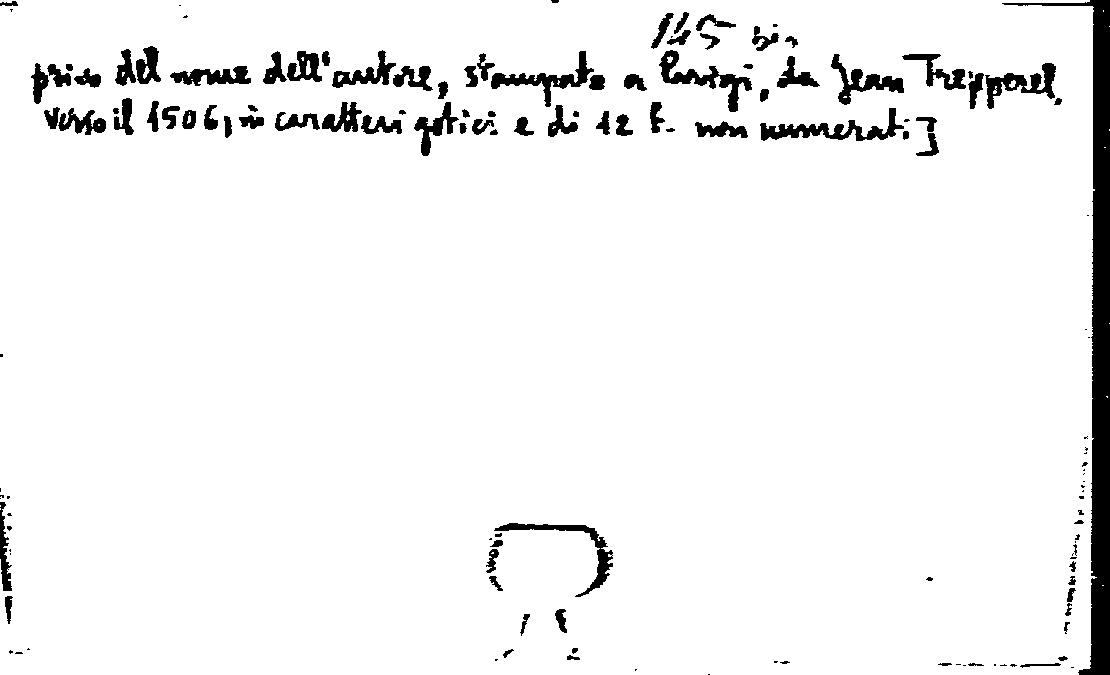 145 bis
privo del nome dell'autore, stampato a Parigi, da Jean Trepperel,
verso il 1506, in caratteri gotici e di 12 f. non numerati]